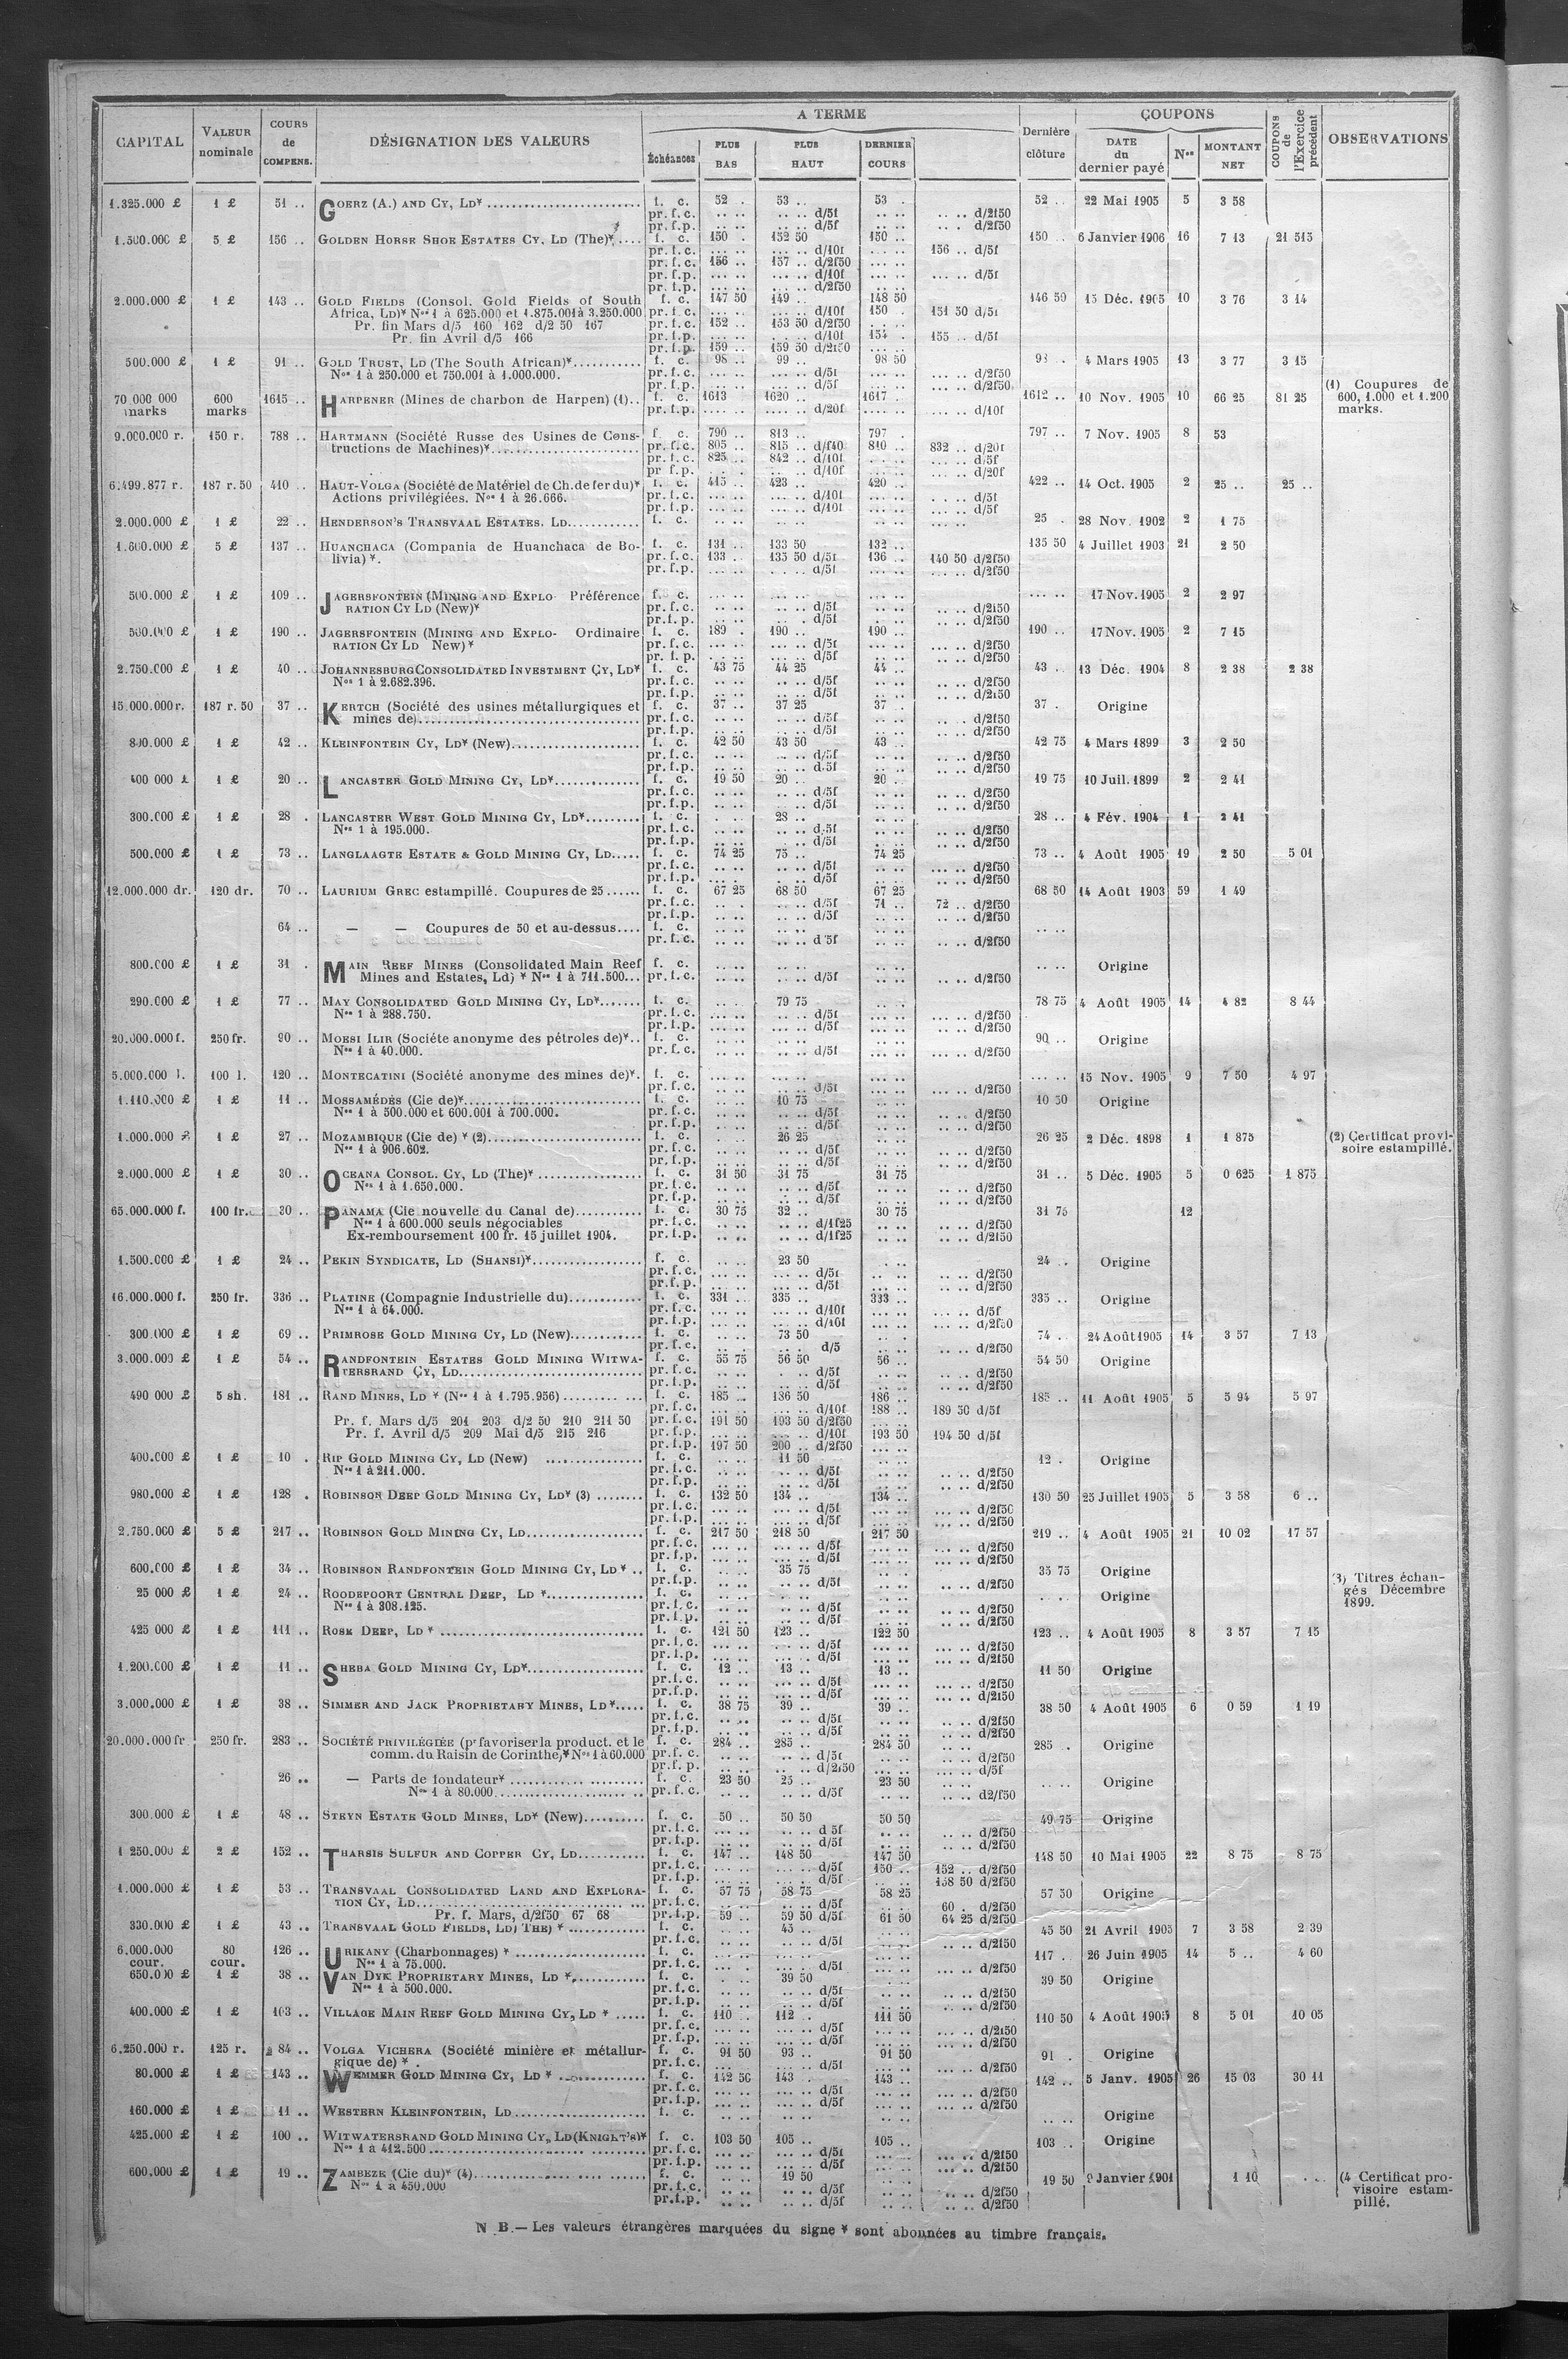 CAPITAL
VALEUR nominale
COURS de COMPENS.
DÉSIGNATION DES VALEURS
A TERME
Échéances
PLUS BAS
PLUS HAUT
DERNIER COURS
Dernière clôture
COUPONS
DATE du dernier payé
Nos
MONTANT NET
COUPONS de l'Exercice précédent
OBSERVATIONS
1.325.000 £ 1 £ 51 .. GOERZ (A.) AND CY, LD* f. c. 52 . 53 .. 53 . 52 .. 22 Mai 1905 5 3 58
pr. f. c. .. .. .. .. d/5f .. .. .. .. d/2f50
pr. f. p. .. .. .. .. d/5f .. .. .. . d/2f50
1.500.000 £ 5 £ 156 .. GOLDEN HORSE SHOE ESTATES CY, LD (The)* f. c. 150 . 152 50 150 .. 150 .. 6 Janvier 1906 16 7 13 21 515
pr. f. c. ... .. ... .. d/10f ... .. 156 .. d/5f
pr. f. c. 156 .. 157 .. d/2f50 ... ..
pr. f. p. ... .. ... .. d/10f ... .. ... .. d/5f
pr. f. p. ... .. ... .. d/2f50 ... ..
2.000.000 £ 1 £ 143 .. GOLD FIELDS (Consol. Gold Fields of South f. c. 147 50 149 .. 148 50 146 50 15 Déc. 1905 10 3 76 3 14
Africa, LD)* Nos 1 à 625.000 et 1.875.001 à 3.250.000 pr. f. c. ... .. ... .. d/10f 150 . 151 50 d/5f
Pr. fin Mars d/5 160 162 d/2 50 167 pr. f. c. 152 .. 153 50 d/2f50
Pr. fin Avril d/5 166 pr. f. p. ... .. ... .. d/10f 154 . 155 .. d/5f
pr. f. p. 159 .. 159 50 d/2f50
500.000 £ 1 £ 91 .. GOLD TRUST, LD (The South African)* f. c. 98 .. 99 .. 98 50 4 Mars 1905 13 3 77 3 15
Nos 1 à 250.000 et 750.001 à 1.000.000. pr. f. c. ... .. ... .. d/5f ... .. ... .. d/2f50
pr. f. p. ... .. ... .. d/5f ... .. ... .. d/2f50
70 000 000 marks 600 marks 1615 .. HARPENER (Mines de charbon de Harpen) (1) .. f. c. 1613 1620 .. 1617 . 1612 .. 10 Nov. 1905 10 66 25 81 25
pr. f. p. .... .. .... .. d/20f .... .. .... .. d/10f
(1) Coupures de
600, 1.000 et 1.200
marks.
9.000.000 r. 150 r. 788 .. HARTMANN (Société Russe des Usines de Cons- f. c. 790 .. 813 .. 797 . 797 .. 7 Nov. 1905 8 53
tructions de Machines)* pr. f. c. 805 .. 815 .. d/f40 810 .. 832 .. d/20f
pr. f. c. 825 .. 842 .. d/10f ... .. ... .. d/5f
pr f. p. d/10f ... .. d/20f
6.499.877 r. 187 r. 50 410 .. HAUT-VOLGA (Société de Matériel de Ch. de fer du)* f. c. 415 .. 423 .. 420 .. 422 .. 14 Oct. 1905 2 25 .. 25 ..
Actions privilégiées. Nos 1 à 26.666. pr. f. c. ... .. ... .. d/10f ... .. d/5f
pr. f. p. ... .. ... .. d/10f ... .. d/5f
2.000.000 £ 1 £ 22 .. HENDERSON'S TRANSVAAL ESTATES, LD f. c. .. .. .. .. .. .. 25 . 28 Nov. 1902 2 1 75
1.600.000 £ 5 £ 137 .. HUANCHACA (Compania de Huanchaca de Bo- f. c. 131 .. 133 50 132 .. 135 50 4 Juillet 1903 21 2 50
livia)*. pr. f. c. 133 .. 135 50 d/5f 136 .. 140 50 d/2f50
pr. f. p. ... .. ... .. d/5f ... .. ... .. d/2f50
500.000 £ 1 £ 109 .. JAGERSFONTEIN (MINING AND EXPLO Préférence f. c. ... .. ... .. ... .. ... .. 17 Nov. 1905 2 2 97
RATION CY LD (New)* pr. f. c. .. .. .. .. d/5f .. .. .. .. d/2f50
pr. f. p. .. .. .. .. d/5f .. .. .. .. d/2f50
500.000 £ 1 £ 190 .. JAGERSFONTEIN (MINING AND EXPLO- Ordinaire f. c. 189 . 190 .. 190 .. 190 .. 17 Nov. 1905 2 7 15
RATION CY LD New)* pr. f. c. ... .. ... .. d/5f ... .. .. .. d/2f50
pr. f. p. ... .. ... .. d/5f ... .. .. .. d/2f50
2.750.000 £ 1 £ 40 .. JOHANNESBURG CONSOLIDATED INVESTMENT CY, LD* f. c. 43 75 44 25 44 .. 43 .. 13 Déc. 1904 8 2 38 2 38
Nos 1 à 2.682.396. pr. f. c. .. .. .. .. d/5f .. .. .. .. d/2f50
pr. f. p. .. .. .. .. d/5f .. .. .. .. d/2f50
15.000.000 r. 187 r. 50 37 .. KERTCH (Société des usines métallurgiques et f. c. 37 .. 37 25 37 . 37 . Origine
mines de) pr. f. c. .. .. .. .. d/5f .. .. .. . d/2f50
pr. f. p. .. .. .. .. d/5f .. .. .. .. d/2f50
800.000 £ 1 £ 42 .. KLEINFONTEIN CY, LD* (New) f. c. 42 50 43 50 43 .. 42 75 4 Mars 1899 3 2 50
pr. f. c. .. .. .. .. d/5f .. .. .. .. d/2f50
pr. f. p. .. .. .. .. d/5f .. .. .. .. d/2f50
400 000 £ 1 £ 20 .. LANCASTER GOLD MINING CY, LD* f. c. 19 50 20 .. 20 .. 19 75 10 Juil. 1899 2 2 41
pr. f. c. .. .. .. .. d/5f .. .. .. .. d/2f50
pr. f. p. .. .. .. .. d/5f .. .. .. .. d/2f50
300.000 £ 1 £ 28 . LANCASTER WEST GOLD MINING CY, LD* f. c. . .. 28 .. .. .. 28 .. 4 Fév. 1904 1 2 41
Nos 1 à 195.000. pr. f. c. .. .. .. .. d/5f .. .. .. .. d/2f50
pr. f. p. .. .. .. .. d/5f .. .. .. .. d/2f50
500.000 £ 1 £ 73 .. LANGLAAGTE ESTATE & GOLD MINING CY, LD f. c. 74 25 75 .. 74 25 73 .. 4 Août 1905 19 2 50 5 01
pr. f. c. .. .. .. .. d/5f .. .. ... .. d/2f50
pr. f. p. .. .. .. .. d/5f .. .. .. .. d/2f50
12.000.000 dr. 120 dr. 70 .. LAURIUM GREC estampillé. Coupures de 25 f. c. 67 25 68 50 67 25 68 50 14 Août 1903 59 1 49
pr. f. c. .. . .. .. d/5f 71 .. 72 .. d/2f50
pr. f. p. .. .. .. .. d/5f .. .. .. .. d/2f50
64 .. — — Coupures de 50 et au-dessus f. c. .. .. .. .. .. .. .. ..
pr. f. c. .. .. .. .. d 5f .. .. .. .. d/2f50
800.000 £ 1 £ 31 . MAIN REEF MINES (Consolidated Main Reef f. c. .. .. .. .. .. .. .. .. Origine
Mines and Estates, Ld) * Nos 1 à 711.500... pr. f. c. .. .. .. .. d/5f .. .. .. .. d/2f50
290.000 £ 1 £ 77 .. MAY CONSOLIDATED GOLD MINING CY, LD* f. c. .. . 79 75 .. . 78 75 4 Août 1905 14 4 82 8 44
Nos 1 à 288.750. pr. f. c. ... .. ... .. d/5f .. .. ... .. d/2f50
pr. f. p. .. .. .. .. d/5f .. .. .. .. d/2f50
20.000.000 f. 250 fr. 90 .. MOESI ILIR (Sociéte anonyme des pétroles de)* .. f. c. .. .. .. .. .. .. 90 .. Origine
Nos 1 à 40.000. pr. f. c. .. .. .. .. d/5f .. .. ... .. d/2f50
5.000.000 l. 100 l. 120 .. MONTECATINI (Société anonyme des mines de)*. f. c. ... .. ... .. ... .. ... .. 15 Nov. 1905 9 7 50 4 97
pr. f. c. ... .. ... .. d/5f ... .. ... .. d/2f50
1.110.000 £ 1 £ 11 .. MOSSAMÉDÈS (Cie de)* f. c. .. .. 10 75 .. .. 10 50 Origine
Nos 1 à 500.000 et 600.001 à 700.000. pr. f. c. .. .. .. .. d/5f .. .. .. .. d/2f50
pr. f. p. .. .. .. .. d/5f .. .. .. .. d/2f50
1.000.000 £ 1 £ 27 .. MOZAMBIQUE (Cie de) * (2) f. c. .. . 26 25 .. .. 26 25 2 Déc. 1898 1 1 875
Nos 1 à 906.602. pr. f. c. .. .. .. .. d/5f .. .. .. .. d/2f50
pr. f. p. .. .. .. .. d/5f .. .. .. .. d/2f50
(2) Certificat provi-
soire estampillé.
2.000.000 £ 1 £ 30 .. OCEANA CONSOL. CY, LD (The)* f. c. 31 50 31 75 31 75 31 .. 5 Déc. 1905 5 0 625 1 875
Nos 1 à 1.650.000. pr. f. c. .. .. .. .. d/5f .. .. .. .. d/2f50
pr. f. p. .. .. .. .. d/5f .. .. .. .. d/2f50
65.000.000 f. 100 fr. 30 .. PANAMA (Cie nouvelle du Canal de) f. c. 30 75 32 .. 30 75 31 75 12
Nos 1 à 600.000 seuls négociables pr. f. c. .. .. .. .. d/1f25 .. .. .. .. d/2f50
Ex-remboursement 100 fr. 15 juillet 1904. pr. f. p. .. .. .. .. d/1f25 .. .. .. .. d/2f50
1.500.000 £ 1 £ 24 .. PEKIN SYNDICATE, LD (SHANSI)* f. c. .. .. 23 50 .. .. 24 .. Origine
pr. f. c. .. .. .. .. d/5f .. .. .. .. d/2f50
pr. f. p. .. .. .. .. d/5f .. .. .. .. d/2f50
16.000.000 f. 250 fr. 336 .. PLATINE (Compagnie Industrielle du) f. c. 331 .. 335 .. 333 .. 335 .. Origine
Nos 1 à 64.000. pr. f. c. ... .. ... .. d/10f ... .. ... .. d/5f
pr. f. p. ... .. ... .. d/10f ... .. ... .. d/2f50
300.000 £ 1 £ 69 .. PRIMROSE GOLD MINING CY, LD (New) f. c. .. .. 73 50 .. . 74 . 24 Août 1905 14 3 57 7 13
pr. f. c. .. .. .. d/5 .. .. .. .. d/2f50
3.000.000 £ 1 £ 54 .. RANDFONTEIN ESTATES GOLD MINING WITWA- f. c. 55 75 56 50 56 .. 54 50 Origine
TERSRAND CY, LD pr. f. c. .. .. .. .. d/5f .. .. .. .. d/2f50
pr. f. p. .. .. .. .. d/5f .. .. .. .. d/2f50
490 000 £ 5 sh. 181 .. RAND MINES, LD * (Nos 1 à 1.795.956) f. c. 185 .. 186 50 186 .. 185 .. 11 Août 1905 5 5 94 5 97
pr. f. c. ... .. ... .. d/10f 188 .. 189 50 d/5f
Pr. f. Mars d/5 201 203 d/2 50 210 211 50 pr. f. c. 191 50 193 50 d/2f50 ... ..
Pr. f. Avril d/5 209 Mai d/5 215 216 pr. f. p. ... .. ... .. d/10f 193 50 194 50 d/5f
pr. f. p. 197 50 200 .. d/2f50 ... ..
400.000 £ 1 £ 10 . RIP GOLD MINING CY, LD (New) f. c. .. .. 11 50 .. .. 12 . Origine
Nos 1 à 211.000. pr. f. c. .. .. .. .. d/5f .. .. .. .. d/2f50
pr. f. p. .. .. .. .. d/5f .. .. .. .. d/2f50
980.000 £ 1 £ 128 . ROBINSON DEEP GOLD MINING CY, LD* (3) f. c. 132 50 134 .. 134 .. 130 50 25 Juillet 1905 5 3 58 6 ..
pr. f. c. ... .. ... .. d/5f ... .. ... .. d/2f50
pr. f. p. ... .. ... .. d/5f ... .. ... .. d/2f50
2.750.000 £ 5 £ 217 .. ROBINSON GOLD MINING CY, LD f. c. 217 50 218 50 217 50 219 .. 4 Août 1905 21 10 02 17 57
pr. f. c. ... .. ... .. d/5f ... .. ... .. d/2f50
pr. f. p. ... .. ... .. d/5f ... .. ... .. d/2f50
600.000 £ 1 £ 34 .. ROBINSON RANDFONTEIN GOLD MINING CY, LD * .. f. c. .. .. 35 75 .. .. 35 75 Origine
pr. f. p. .. .. .. .. d/5f .. .. .. .. d/2f50
(3) Titres échan-
gés Décembre
1899.
25 000 £ 1 £ 24 .. ROODEPOORT CENTRAL DEEP, LD * f. c. .. .. .. .. .. .. Origine
Nos 1 à 308.125. pr. f. c. .. .. .. .. d/5f .. .. .. .. d/2f50
pr. f. p. .. .. .. .. d/5f .. .. .. .. d/2f50
425 000 £ 1 £ 111 .. ROSE DEEP, LD * f. c. 121 50 123 .. 122 50 123 .. 4 Août 1905 8 3 57 7 15
pr. f. c. ... .. ... .. d/5f ... .. ... .. d/2f50
pr. f. p. ... .. ... .. d/5f ... .. ... .. d/2f50
1.200.000 £ 1 £ 11 .. SHEBA GOLD MINING CY, LD* f. c. 12 .. 13 .. 13 .. 11 50 Origine
pr. f. c. .. .. .. .. d/5f .. .. .. .. d/2f50
pr. f. p. .. .. .. .. d/5f .. .. .. .. d/2f50
3.000.000 £ 1 £ 38 .. SIMMER AND JACK PROPRIETARY MINES, LD* f. c. 38 75 39 .. 39 .. 38 50 4 Août 1905 6 0 59 1 19
pr. f. c. .. .. .. .. d/5f .. .. .. .. d/2f50
pr. f. p. .. .. .. .. d/5f .. .. .. .. d/2f50
20.000.000 fr 250 fr. 283 .. SOCIÉTÉ PRIVILÉGIÉE (pr favoriser la product. et le f. c. 284 .. 285 .. 284 50 285 . Origine
comm. du Raisin de Corinthe)* Nos 1 à 60.000 pr. f. c. .. .. .. .. d/5f ... .. ... .. d/2f50
pr. f. p. .. .. .. .. d/2f50 ... .. ... .. d/5f
26 .. — Parts de fondateur* f. c. 23 50 25 .. 23 50 .. .. Origine
Nos 1 à 80.000 pr. f. c. .. .. .. .. d/5f .. .. .. .. d2/f50
300.000 £ 1 £ 48 .. STEYN ESTATE GOLD MINES, LD* (New) f. c. 50 .. 50 50 50 50 49 75 Origine
pr. f. c. ... .. .. .. d 5f .. .. .. .. d/2f50
pr. f. p. .. .. .. .. d/5f .. .. .. .. d/2f50
1 250.000 £ 2 £ 152 .. THARSIS SULFUR AND COPPER CY, LD f. c. 147 .. 148 50 147 50 148 50 10 Mai 1905 22 8 75 8 75
pr. f. c. ... .. ... .. d/5f 150 .. 152 .. d/2f50
pr. f. p. ... .. ... .. d/5f ... .. 158 50 d/2f50
1.000.000 £ 1 £ 53 .. TRANSVAAL CONSOLIDATED LAND AND EXPLORA- f. c. 57 75 58 75 58 25 57 50 Origine
TION CY, LD pr. f. c. .. .. .. .. d/5f .. .. 60 . d/2f50
Pr. f. Mars, d/2f50 67 68 pr. f. p. 59 .. 59 50 d/5f 61 50 64 25 d/2f50
330.000 £ 1 £ 43 .. TRANSVAAL GOLD FIELDS, LD) THE) * f. c. .. .. 45 .. .. .. 45 50 21 Avril 1905 7 3 58 2 39
pr. f. c. .. .. .. .. d/5f .. .. .. .. d/2f50
6.000.000 cour. 80 cour. 126 .. URIKANY (Charbonnages) * f. c. ... .. ... .. ... .. 117 . 26 Juin 1905 14 5 .. 4 60
Nos 1 à 75.000. pr. f. c. ... .. ... .. d/5f ... .. ... .. d/2f50
650.000 £ 1 £ 38 .. VAN DYK PROPRIETARY MINES, LD * f. c. .. .. 39 50 .. .. 39 50 Origine
Nos 1 à 500.000. pr. f. c. .. .. .. .. d/5f .. .. .. .. d/2f50
pr. f. p. .. .. .. .. d/5f .. .. .. .. d/2f50
400.000 £ 1 £ 103 .. VILLAGE MAIN REEF GOLD MINING CY, LD * f. c. 110 .. 112 .. 111 50 110 50 4 Août 1905 8 5 01 10 05
pr. f. c. ... .. ... .. d/5f ... .. ... .. d/2f50
pr. f. p. ... .. ... .. d/5f ... .. ... .. d/2f50
6.250.000 r. 125 r. 84 .. VOLGA VICHERA (Société minière et métallur- f. c. 91 50 93 .. 91 50 91 . Origine
gique de) * . pr. f. c. .. .. .. .. d/5f .. .. .. .. d/2f50
80.000 £ 1 £ 143 .. WEMMER GOLD MINING CY, LD * f. c. 142 50 143 . 143 .. 142 .. 5 Janv. 1905 26 15 03 30 11
pr. f. c. ... .. ... .. d/5f ... .. ... .. d/2f50
pr. f. p. ... .. ... .. d/5f ... .. ... .. d/2f50
160.000 £ 1 £ 11 .. WESTERN KLEINFONTEIN, LD f. c. .. .. .. .. .. .. .. .. Origine
425.000 £ 1 £ 100 .. WITWATERSRAND GOLD MINING CY, LD (KNIGHT'S)* f. c. 103 50 105 .. 105 .. 103 .. Origine
Nos 1 à 412.500 pr. f. c. ... .. ... .. d/5f ... .. ... .. d/2f50
pr. f. p. ... .. ... .. d/5f ... .. ... .. d/2f50
600.000 £ 1 £ 19 .. ZAMBEZE (Cie du)* (4) f. c. .. .. 19 50 .. .. 19 50 9 Janvier 1901 1 10
Nos 1 à 450.000 pr. f. c. .. .. .. .. d/5f .. .. .. .. d/2f50
pr. f. p. .. .. .. .. d/5f .. .. .. .. d/2f50
(4 Certificat pro-
visoire estam-
pillé.
N. B. — Les valeurs étrangères marquées du signe * sont abonnées au timbre français.